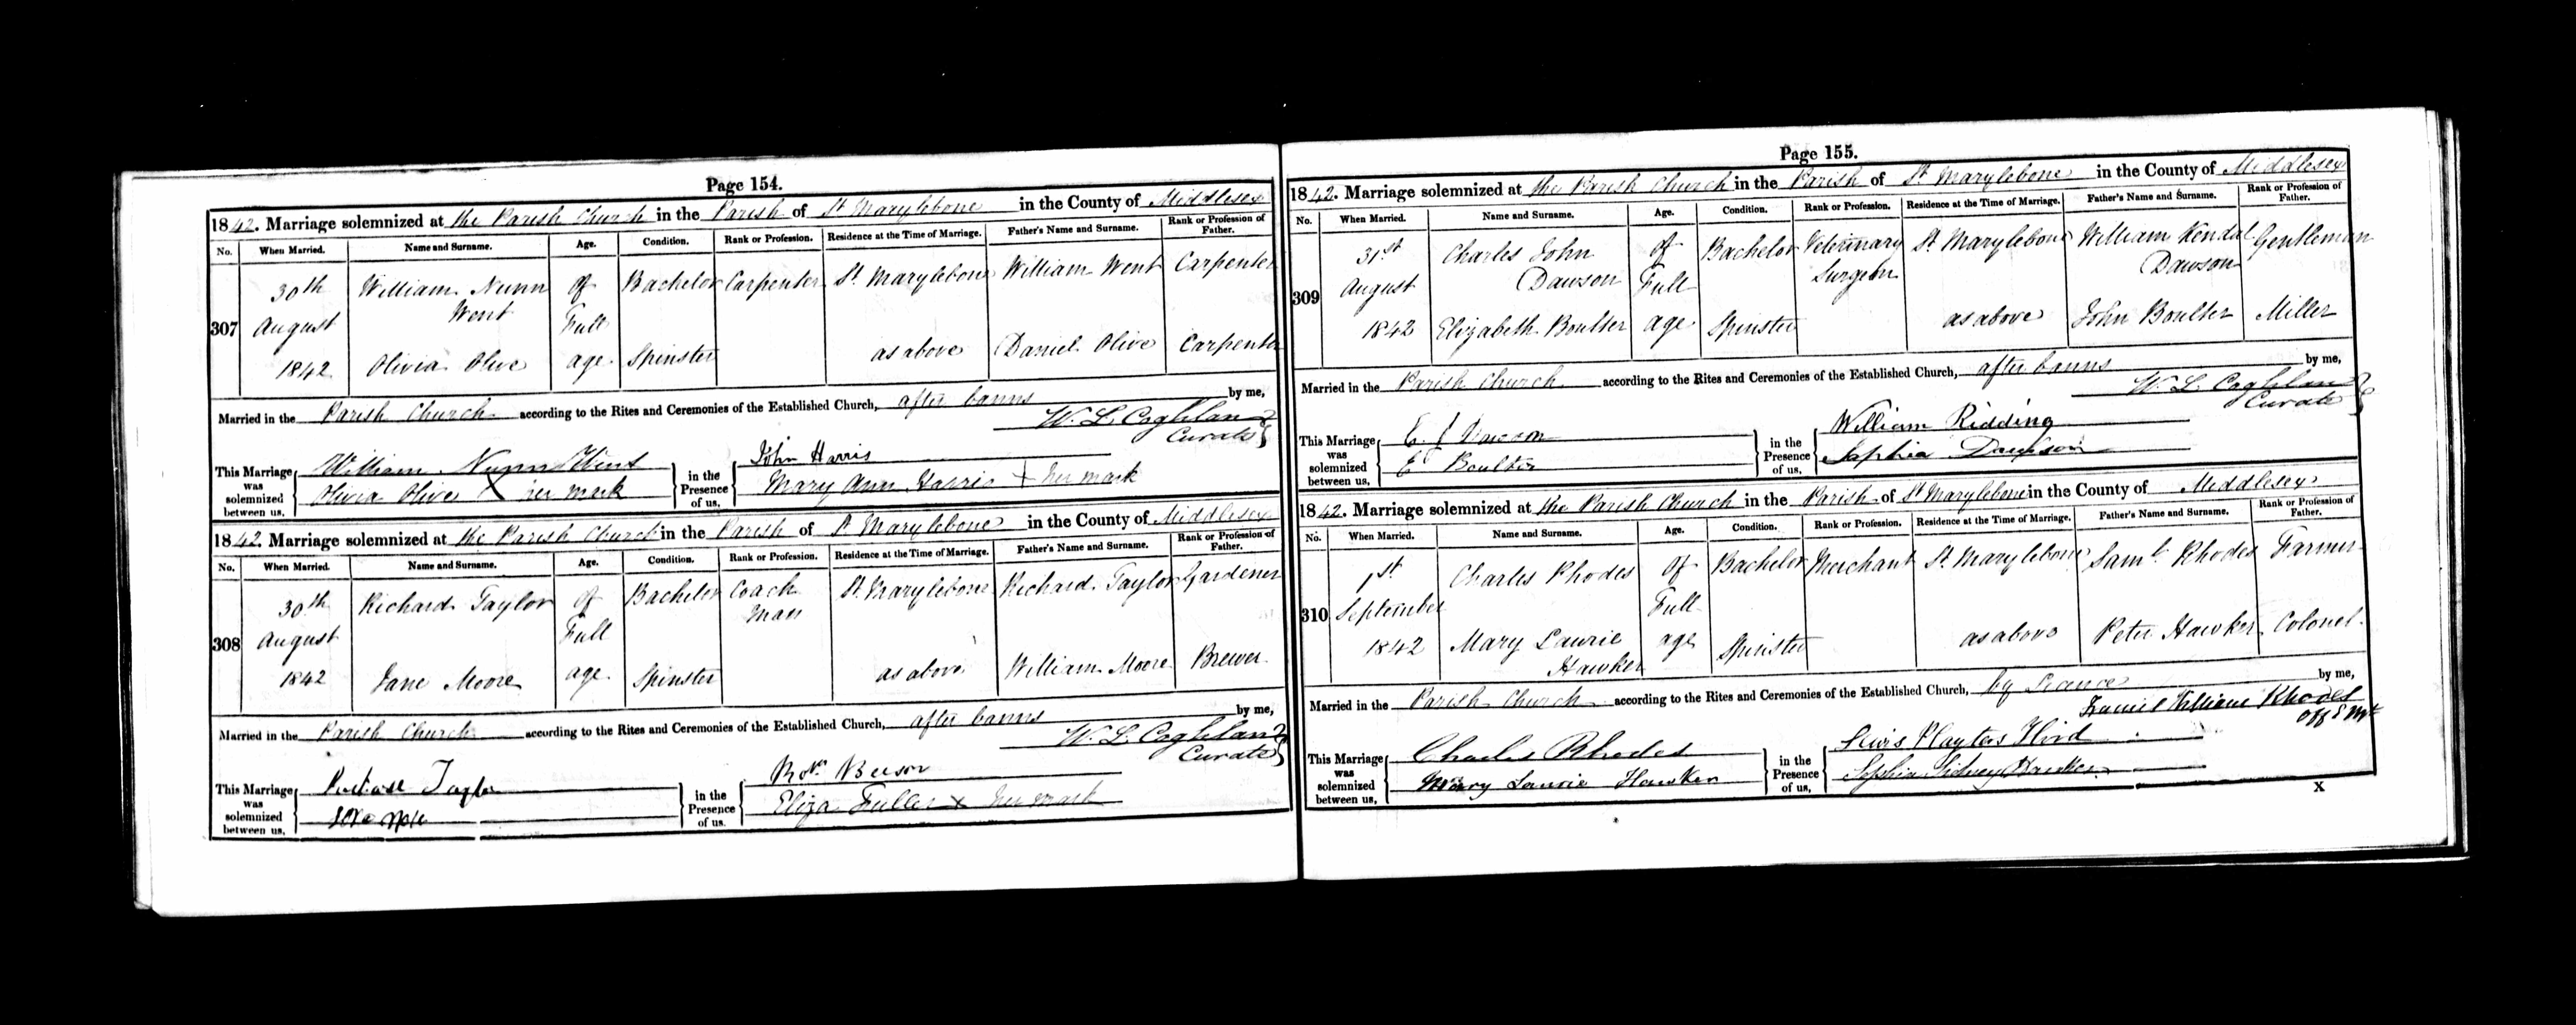 Page 154.
1842. Marriage solemnized at the Parish Church in the Parish of St Marylebone in the County of Middlesex
No. When Married. Name and Surname. Age. Condition. Rank or Profession. Residence at the Time of Marriage. Father's Name and Surname. Rank or Profession of Father.
307 30th August 1842 William Nunn Went of Full age Bachelor Carpenter St Marylebone William Went Carpenter
Olivia Olive Spinster as above Daniel Olive Carpenter
Married in the Parish Church according to the Rites and Ceremonies of the Established Church, after banns by me,
W. L. Coghlan Curate
This Marriage was solemnized between us, William Nunn Went in the Presence of us, John Harris
Olivia Olive X her mark Mary Ann Harris + her mark
1842. Marriage solemnized at the Parish Church in the Parish of St Marylebone in the County of Middlesex
No. When Married. Name and Surname. Age. Condition. Rank or Profession. Residence at the Time of Marriage. Father's Name and Surname. Rank or Profession of Father.
308 30th August 1842 Richard Taylor of Full age Bachelor Coach Man St Marylebone Richard Taylor Gardener
Jane Moore Spinster as above William Moore Brewer
Married in the Parish Church according to the Rites and Ceremonies of the Established Church, after banns by me,
W. L. Coghlan Curate
This Marriage was solemnized between us, Taylor in the Presence of us.
Eliza Fuller x her mark
Page 155.
1842. Marriage solemnized at the Parish Church in the Parish of St Marylebone in the County of Middlesex
No. When Married. Name and Surname. Age. Condition. Rank or Profession. Residence at the Time of Marriage. Father's Name and Surname. Rank or Profession of Father.
309 31st August 1842 Charles John Dawson of Full age Bachelor Veterinary Surgeon St Marylebone William Kendal Dawson Gentleman
Elizabeth Boulter Spinster as above John Boulter Miller
Married in the Parish Church according to the Rites and Ceremonies of the Established Church, after banns by me,
W. L. Coghlan Curate
This Marriage was solemnized between us, Dawson in the Presence of us, William Ridding
Boulter Sophia Dawson
1842. Marriage solemnized at the Parish Church in the Parish of St Marylebone in the County of Middlesex
No. When Married. Name and Surname. Age. Condition. Rank or Profession. Residence at the Time of Marriage. Father's Name and Surname. Rank or Profession of Father.
310 1st September 1842 Charles Rhodes of Full age Bachelor Merchant St Marylebone Saml Rhodes Farmer
Mary Laurie Hawker Spinster as above Peter Hawker Colonel
Married in the Parish Church according to the Rites and Ceremonies of the Established Church, by Licence by me,
William Rhodes
This Marriage was solemnized between us, Charles Rhodes in the Presence of us, Lewis Playters Hird
Mary Laurie Hawker Sophia Sidney Hawker
x